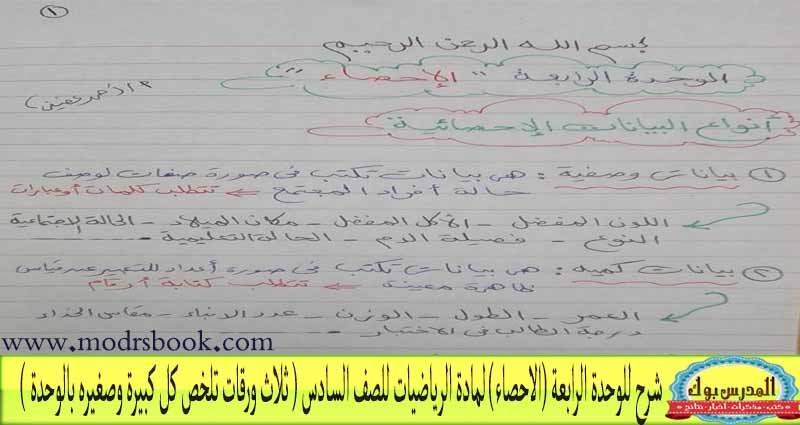 ١
بسم الله الرحمن الرحيم
الوحدة الرابعة " الإحصاء "
أنواع البيانات الإحصائية
① بيانات وصفية : هى بيانات تكتب فى صورة صفات لوصف
حالة أفراد المجتمع ← تتطلب كلمات أو عبارات
اللون المفضل - الأكل المفضل - مكان الميلاد - الحالة الإجتماعية
النوع - فصيلة الدم - الحالة التعليمية
② بيانات كميه : هى بيانات تكتب فى صورة أعداد للتعبير عن قياس
ظاهرة معينه ← تتطلب كتابة أرقام
العمر - الطول - الوزن - عدد الابناء - مقاس الحذاء
درجة الطالب فى الاختبار
www.modrsbook.com
شرح للوحدة الرابعة (الاحصاء) لمادة الرياضيات للصف السادس ( ثلاث ورقات تلخص كل كبيرة وصغيره بالوحدة )
المدرس بوك
كتب - مذكرات - أخبار - نتائج